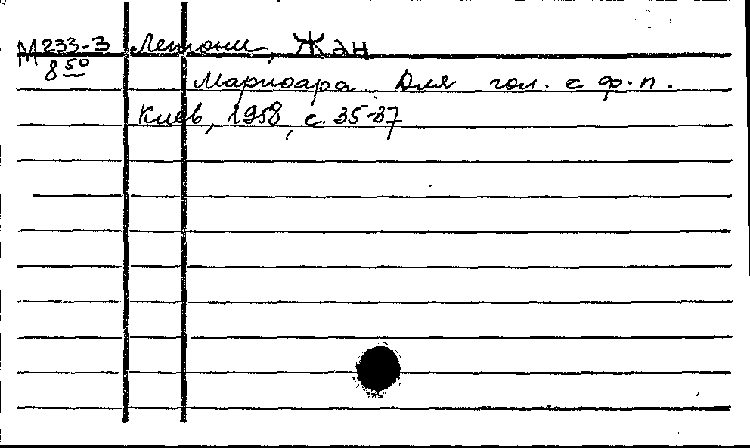 М 233-3 Летони, Жан
8 50
Мариоара. Для гол. с ф.-п.
Киев, 1958, с. 35-37